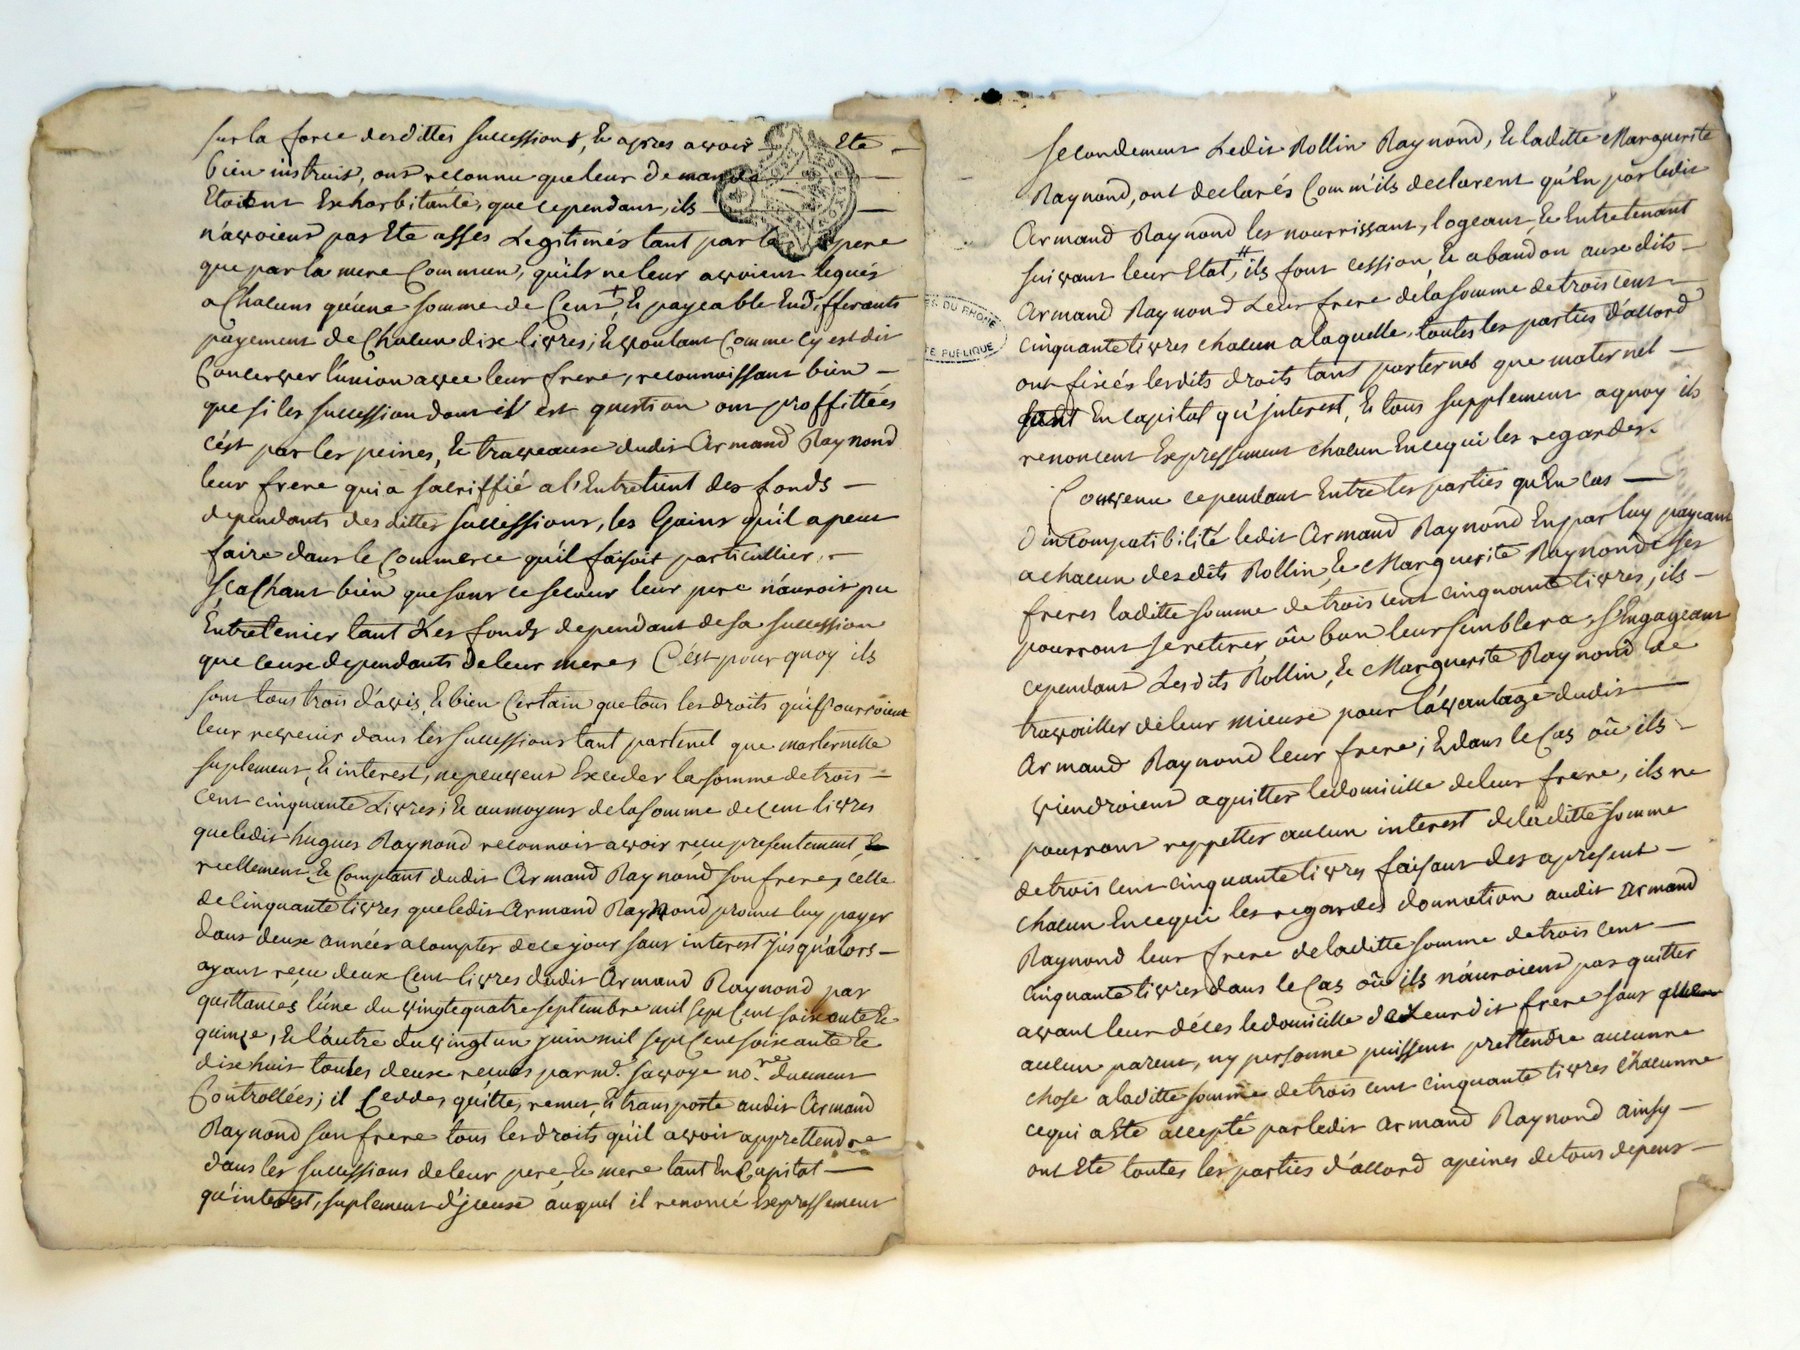 sur la force desdittes successions, & apres avoir Eté
bien instruit, ont reconnu que leur demande
Etoient Exhorbitante, que cependant, ils
n'avoient pas Eté assés Legitimés tant par le pere
que par la mere Commun, qu'ils ne leur avoient legués
a Chacuns qu'une somme de Cent + & payable En differants
payement de Chacun dix livres; & voulant Comme cy est dit
Concerver l'union avec leur frere, reconnoissant bien
que si les succession dont il est question ont proffittées
c'ést par les peines, & traveaux dudit Armand Raynond
leur frere qui a sacriffié a l'Entretient des fonds
dependants des dittes successions, les Gains qu'il a peut
faire dans le Commerce qu'il faisoit particullier
sçaChant bien que sans ce secour leur pere n'auroit pu
Entretenier tant Les fonds dependant de sa succession
que ceux dependants de leur meres C'ést pourquoy ils
sont tous trois d'avis, & bien Certain que tous les droits qu'il pourroient
leur revenir dans les successions tant paternel que maternelle
suplement, & interest, ne peuvent Exceder la somme de trois
cent cinquante Livres; & au moyens de la somme de cent livres
que ledit hugues Raynond reconnoit avoir reçu presentement, &
reellement & Comptant dudit Armand Raynond son frere, celle
de Cinquante livres que ledit Armand Raynond promet luy payer
dans deux années a compter de ce jour sans interest jusqu'alors
ayant reçu deux Cent livres dudit Armand Raynond par
quittances l'une du vingtequatre septembre mil sept Cent soixante &
quinze, & l'autre du vingt un juin mil sept Cent soixante &
dix huit toutes deux recues par m.e savoye no.re duement
Controllées; il Ceddes, quitte, remet, & transporte audit Armand
Raynond son frere tous les droits qu'il avoit a prettendre
dans les successions de leur pere & mere tant En Capital
qu'interest, suplement d'jceux auquel il renonce Expressement
secondement Ledit Rollin Raynond, & laditte Marguerite
Raynond, ont declarés Comm'ils declarent qu'En par ledit
Armand Raynond les nourrissant, logeant, & Entretenant
suivant leur Etat, # ils font cession & abandon aux dits
Armand Raynond Leur frere de la somme de trois cent
cinquante livres chacun a laquelle, toutes les parties d'accord
ont fixés lesdits droits tant paternel que maternel
tant En capital qu'jnterest, & tous supplement a quoy ils
renoncent Expressement chacun En ce qui les regardes.
Convenu cependant Entre les parties qu'En cas
d'incompatibilité ledit Armand Raynond En par luy payeant
a chacun desdits Rollin & Marguerite Raynond ses
freres laditte somme de trois cent cinquante livres, ils
pourront se retirer où bon leur semblera, s'Engageant
cependant Lesdits Rollin, & Marguerite Raynond de
travailler de leur mieux pour l'avantage dudit
Armand Raynond leur frere; & dans le Cas où ils
viendroient a quitter le domicille de leur frere, ils ne
pourront reppetter aucun interest de laditte somme
de trois cent cinquante livres faisant des a present
chacun En ce qui les regardes donnation audit Armand
Raynond leur frere de laditte somme de trois cent
cinquante livres dans le Cas où ils n'auroient pas quitter
avant leur déces le domicille de Leurdit frere sans
aucun parent, ny personne puissent prettendre aucunne
chose a laditte somme de trois cent cinquante livres chacunne
ce qui a Eté accepté par ledit Armand Raynond ainsy
ont Eté toutes les parties d'accord a peines de tous depens
DU RHONE
PUBLIQUE